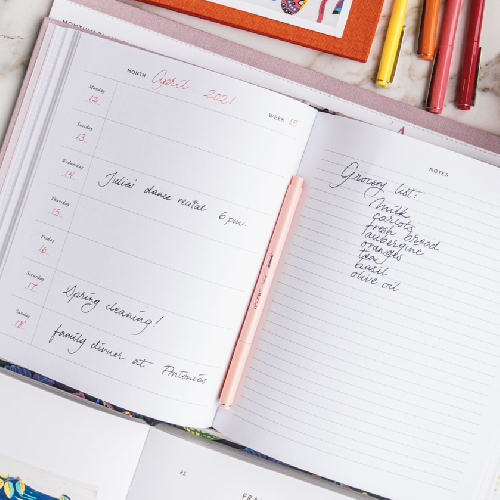 MONTH April 2021
WEEK 15
Monday
12.
Tuesday
13.
Wednesday
14. Julia's dance recital 6 p.m.
Thursday
15.
Friday
16.
Saturday
17. Spring cleaning!
Sunday
18. family dinner at Antonio's
NOTES
Grocery list:
milk
carrots
fresh bread
aubergine
oranges
tea
basil
olive oil